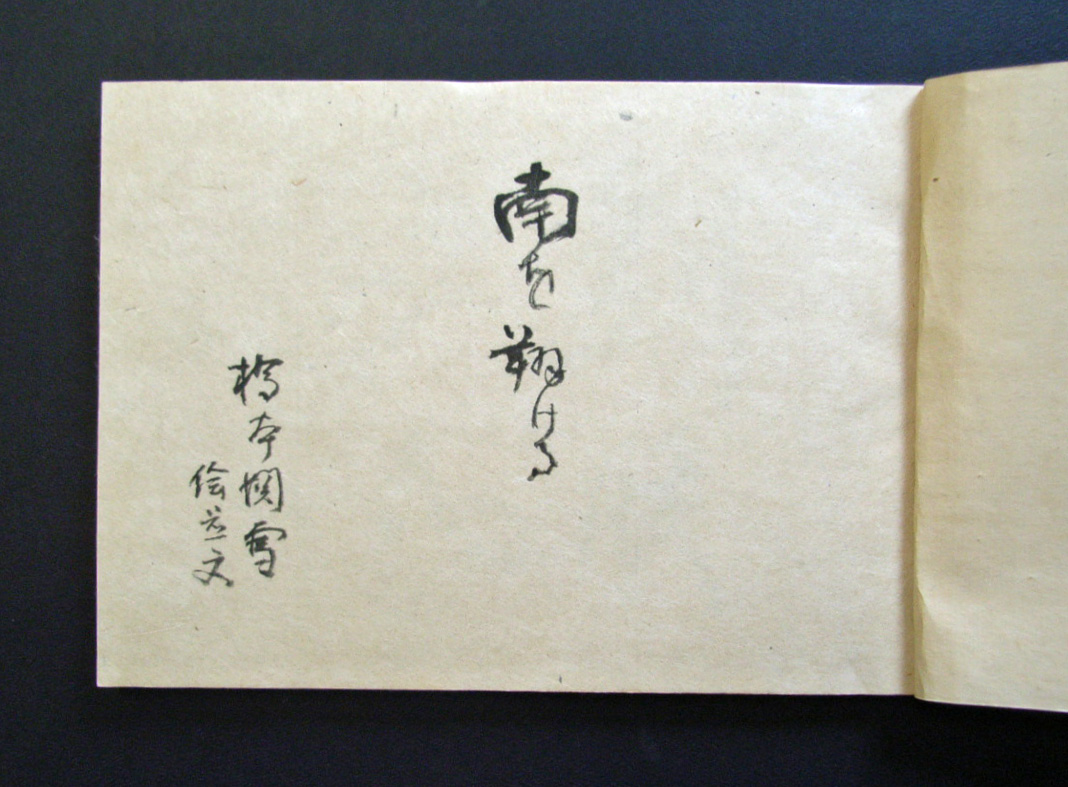 南を翔ける
橋本関雪
絵並文